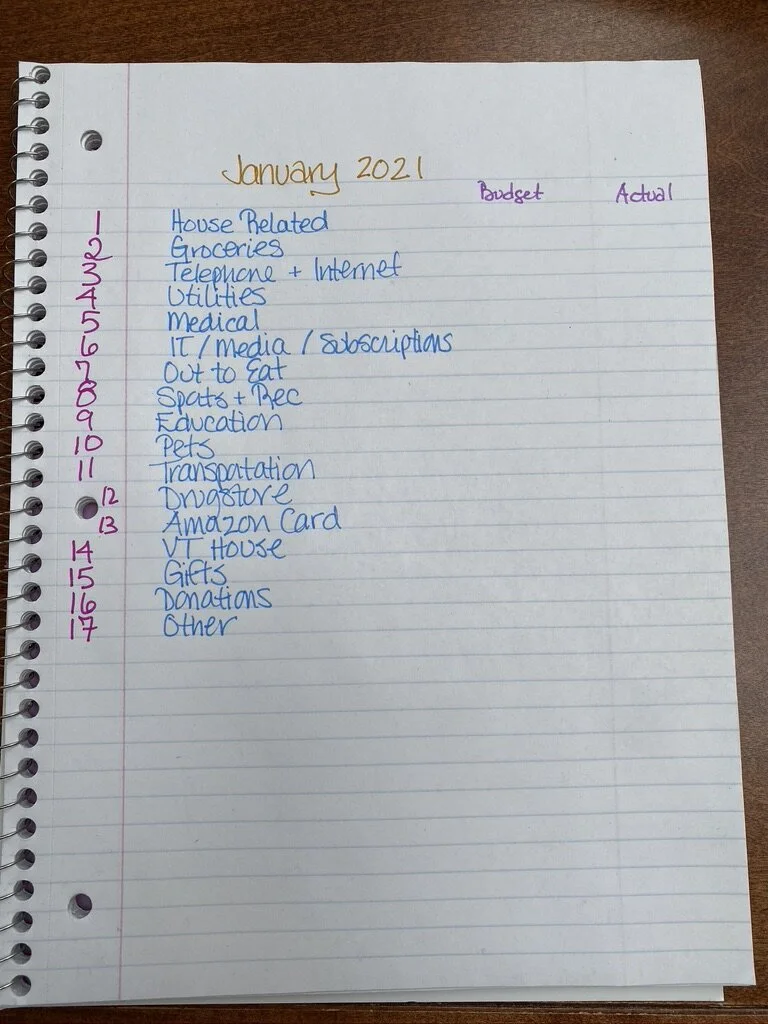 January 2021
Budget Actual
1 House Related
2 Groceries
3 Telephone + Internet
4 Utilities
5 Medical
6 IT / Media / Subscriptions
7 Out to Eat
8 Spots + Rec
9 Education
10 Pets
11 Transpatation
12 Drugstore
13 Amazon Card
14 VT House
15 Gifts
16 Donations
17 Other